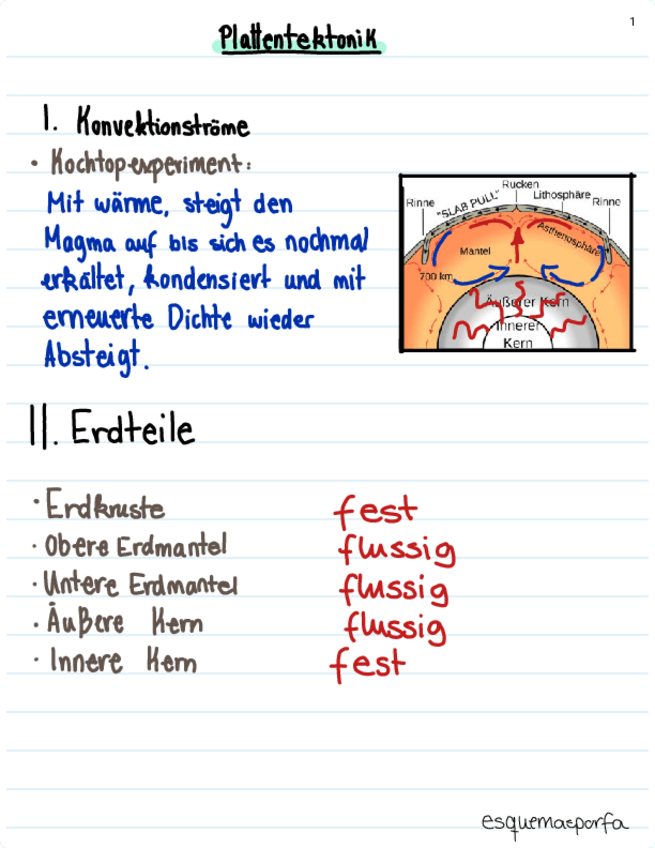 1
Plattentektonik
I. Konvektionströme
• Kochtopexperiment:
Mit wärme, steigt den
Magma auf bis sich es nochmal
erkältet, kondensiert und mit
erneuerte Dichte wieder
Absteigt.
Rucken
Rinne "SLAB PULL" Lithosphäre Rinne
Asthenosphäre
Mantel
700 km
Äußerer Kern
Innerer
Kern
II. Erdteile
· Erdkruste fest
· Obere Erdmantel flussig
· Untere Erdmantel flussig
· Äußere Kern flussig
· Innere Kern fest
esquemasporfa